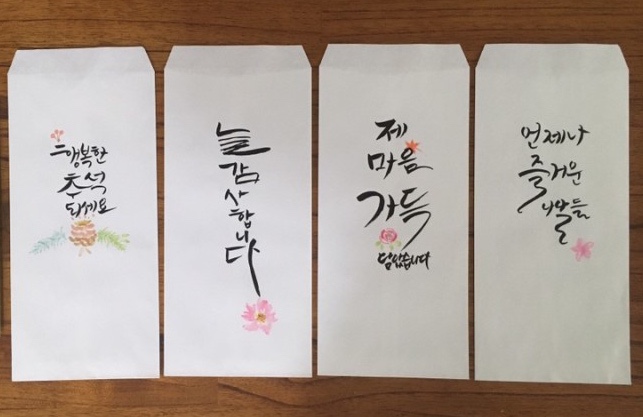 행복한
추석
되세요
늘
감
사
합
니
다
제
마음
가득
담았습니다
언제나
즐거운
나날들